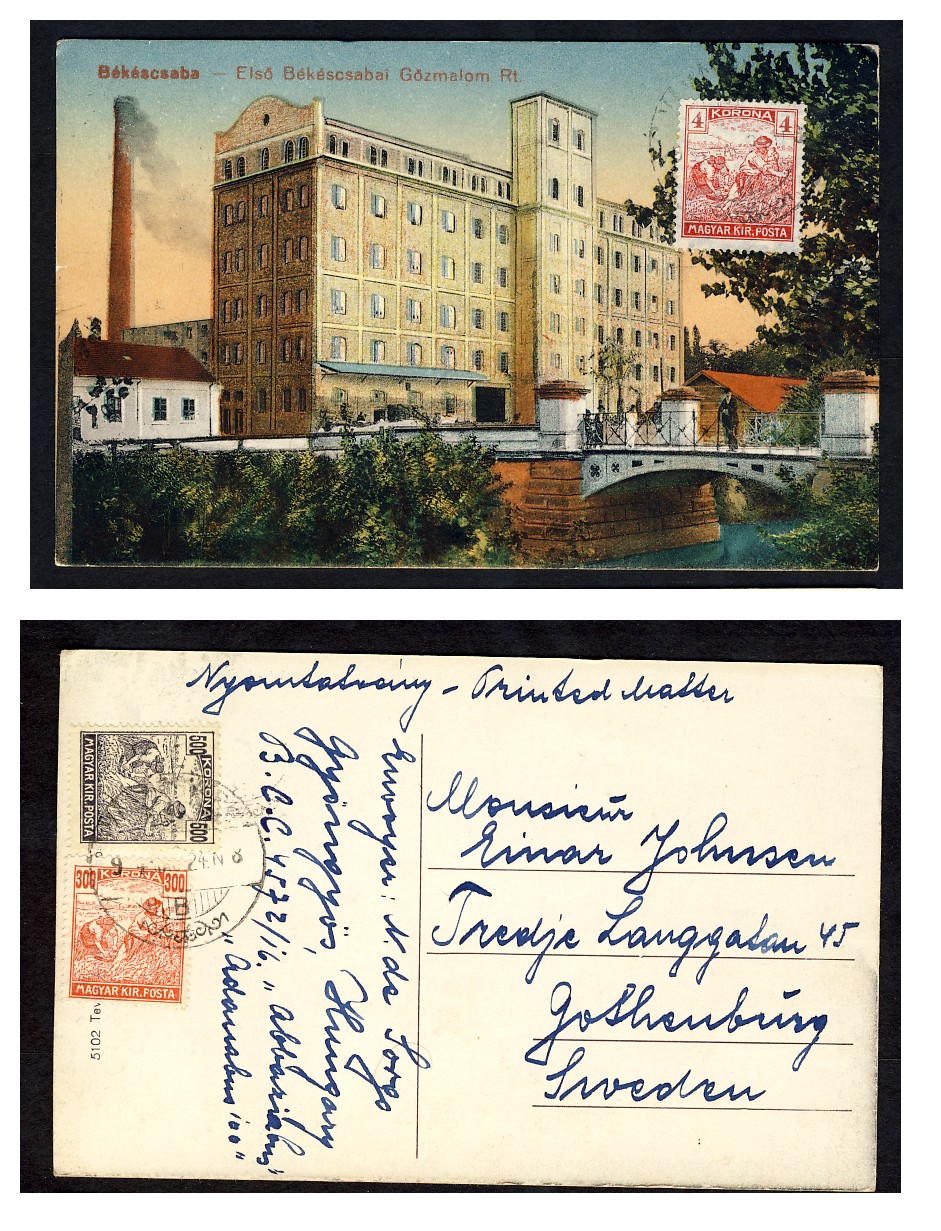 Békéscsaba — Első Békéscsabai Gőzmalom Rt.
4 KORONA 4
MAGYAR KIR. POSTA
Nyomtatvány - Printed Matter
500 KORONA 500
MAGYAR KIR. POSTA
24. IV 8
300 KORONA 300
MAGYAR KIR. POSTA
5102 Tev
Envoyeur: N. de Sorgo
Gyöngyös, Hungary
B.C.C. 4572/16. "Abbaziabus"
"Adamabus '00"
Monsieur
Einar Johnsen
Tredje Langgatan 45
Gothenburg
Sweden